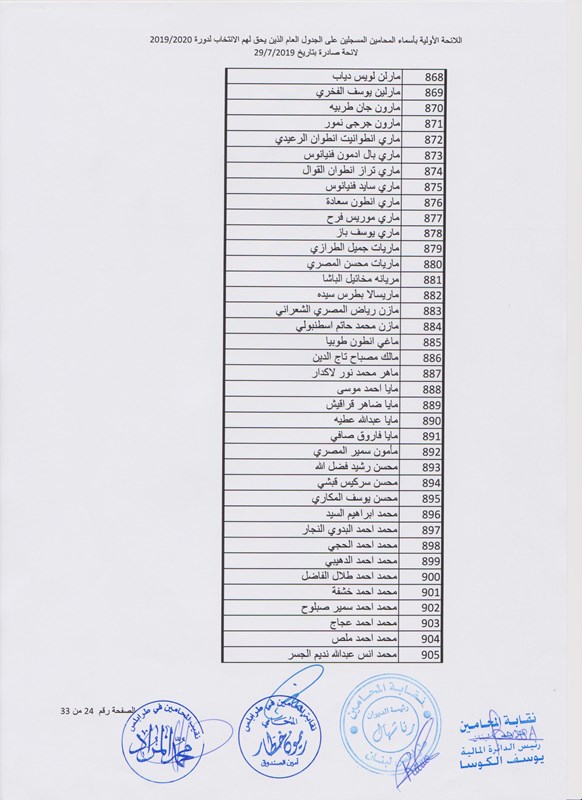 اللائحة الأولية بأسماء المحامين المسجلين على الجدول العام الذين يحق لهم الانتخاب لدورة 2019/2020
لائحة صادرة بتاريخ 29/7/2019
868 مارلن لويس دياب
869 مارلين يوسف الفخري
870 مارون جان طربيه
871 مارون جرجى نمور
872 ماري انطوانيت انطوان الرعيدي
873 ماري بال ادمون فنيانوس
874 ماري تراز انطوان القوال
875 ماري سايد فنيانوس
876 ماري انطون سعادة
877 ماري موريس فرح
878 ماري يوسف باز
879 ماريات جميل الطرازي
880 ماريات محسن المصري
881 مريانه مخائيل الباشا
882 ماريسالا بطرس سيده
883 مازن رياض المصري الشعراني
884 مازن محمد حاتم اسطنبولي
885 ماغي انطون طوبيا
886 مالك مصباح تاج الدين
887 ماهر محمد نور لاكدار
888 مايا احمد موسى
889 مايا ضاهر قرافيش
890 مايا عبدالله عطيه
891 مايا فاروق صافي
892 مأمون سمير المصري
893 محسن رشيد فضل الله
894 محسن سركيس قبشي
895 محسن يوسف المكاري
896 محمد ابراهيم السيد
897 محمد احمد البدوي النجار
898 محمد احمد الحجي
899 محمد احمد الدهيبي
900 محمد احمد طلال الفاضل
901 محمد احمد خشفة
902 محمد احمد سمير صبلوح
903 محمد احمد عجاج
904 محمد احمد ملص
905 محمد انس عبدالله نديم الجسر
نقابة المحامين
رئيس الدائرة المالية
يوسف الكوسا
نقابة المحامين
رئيسة الديوان
رنا شهال
لبنان
نقابة المحامين في طرابلس
المحامي
ريمون خطار
أمين الصندوق
نقيب المحامين في طرابلس
محمد المراد
الصفحة رقم 24 من 33